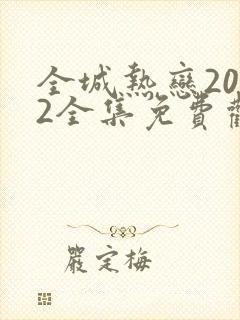 全城熱戀20
2全集免費觀
嚴定梅